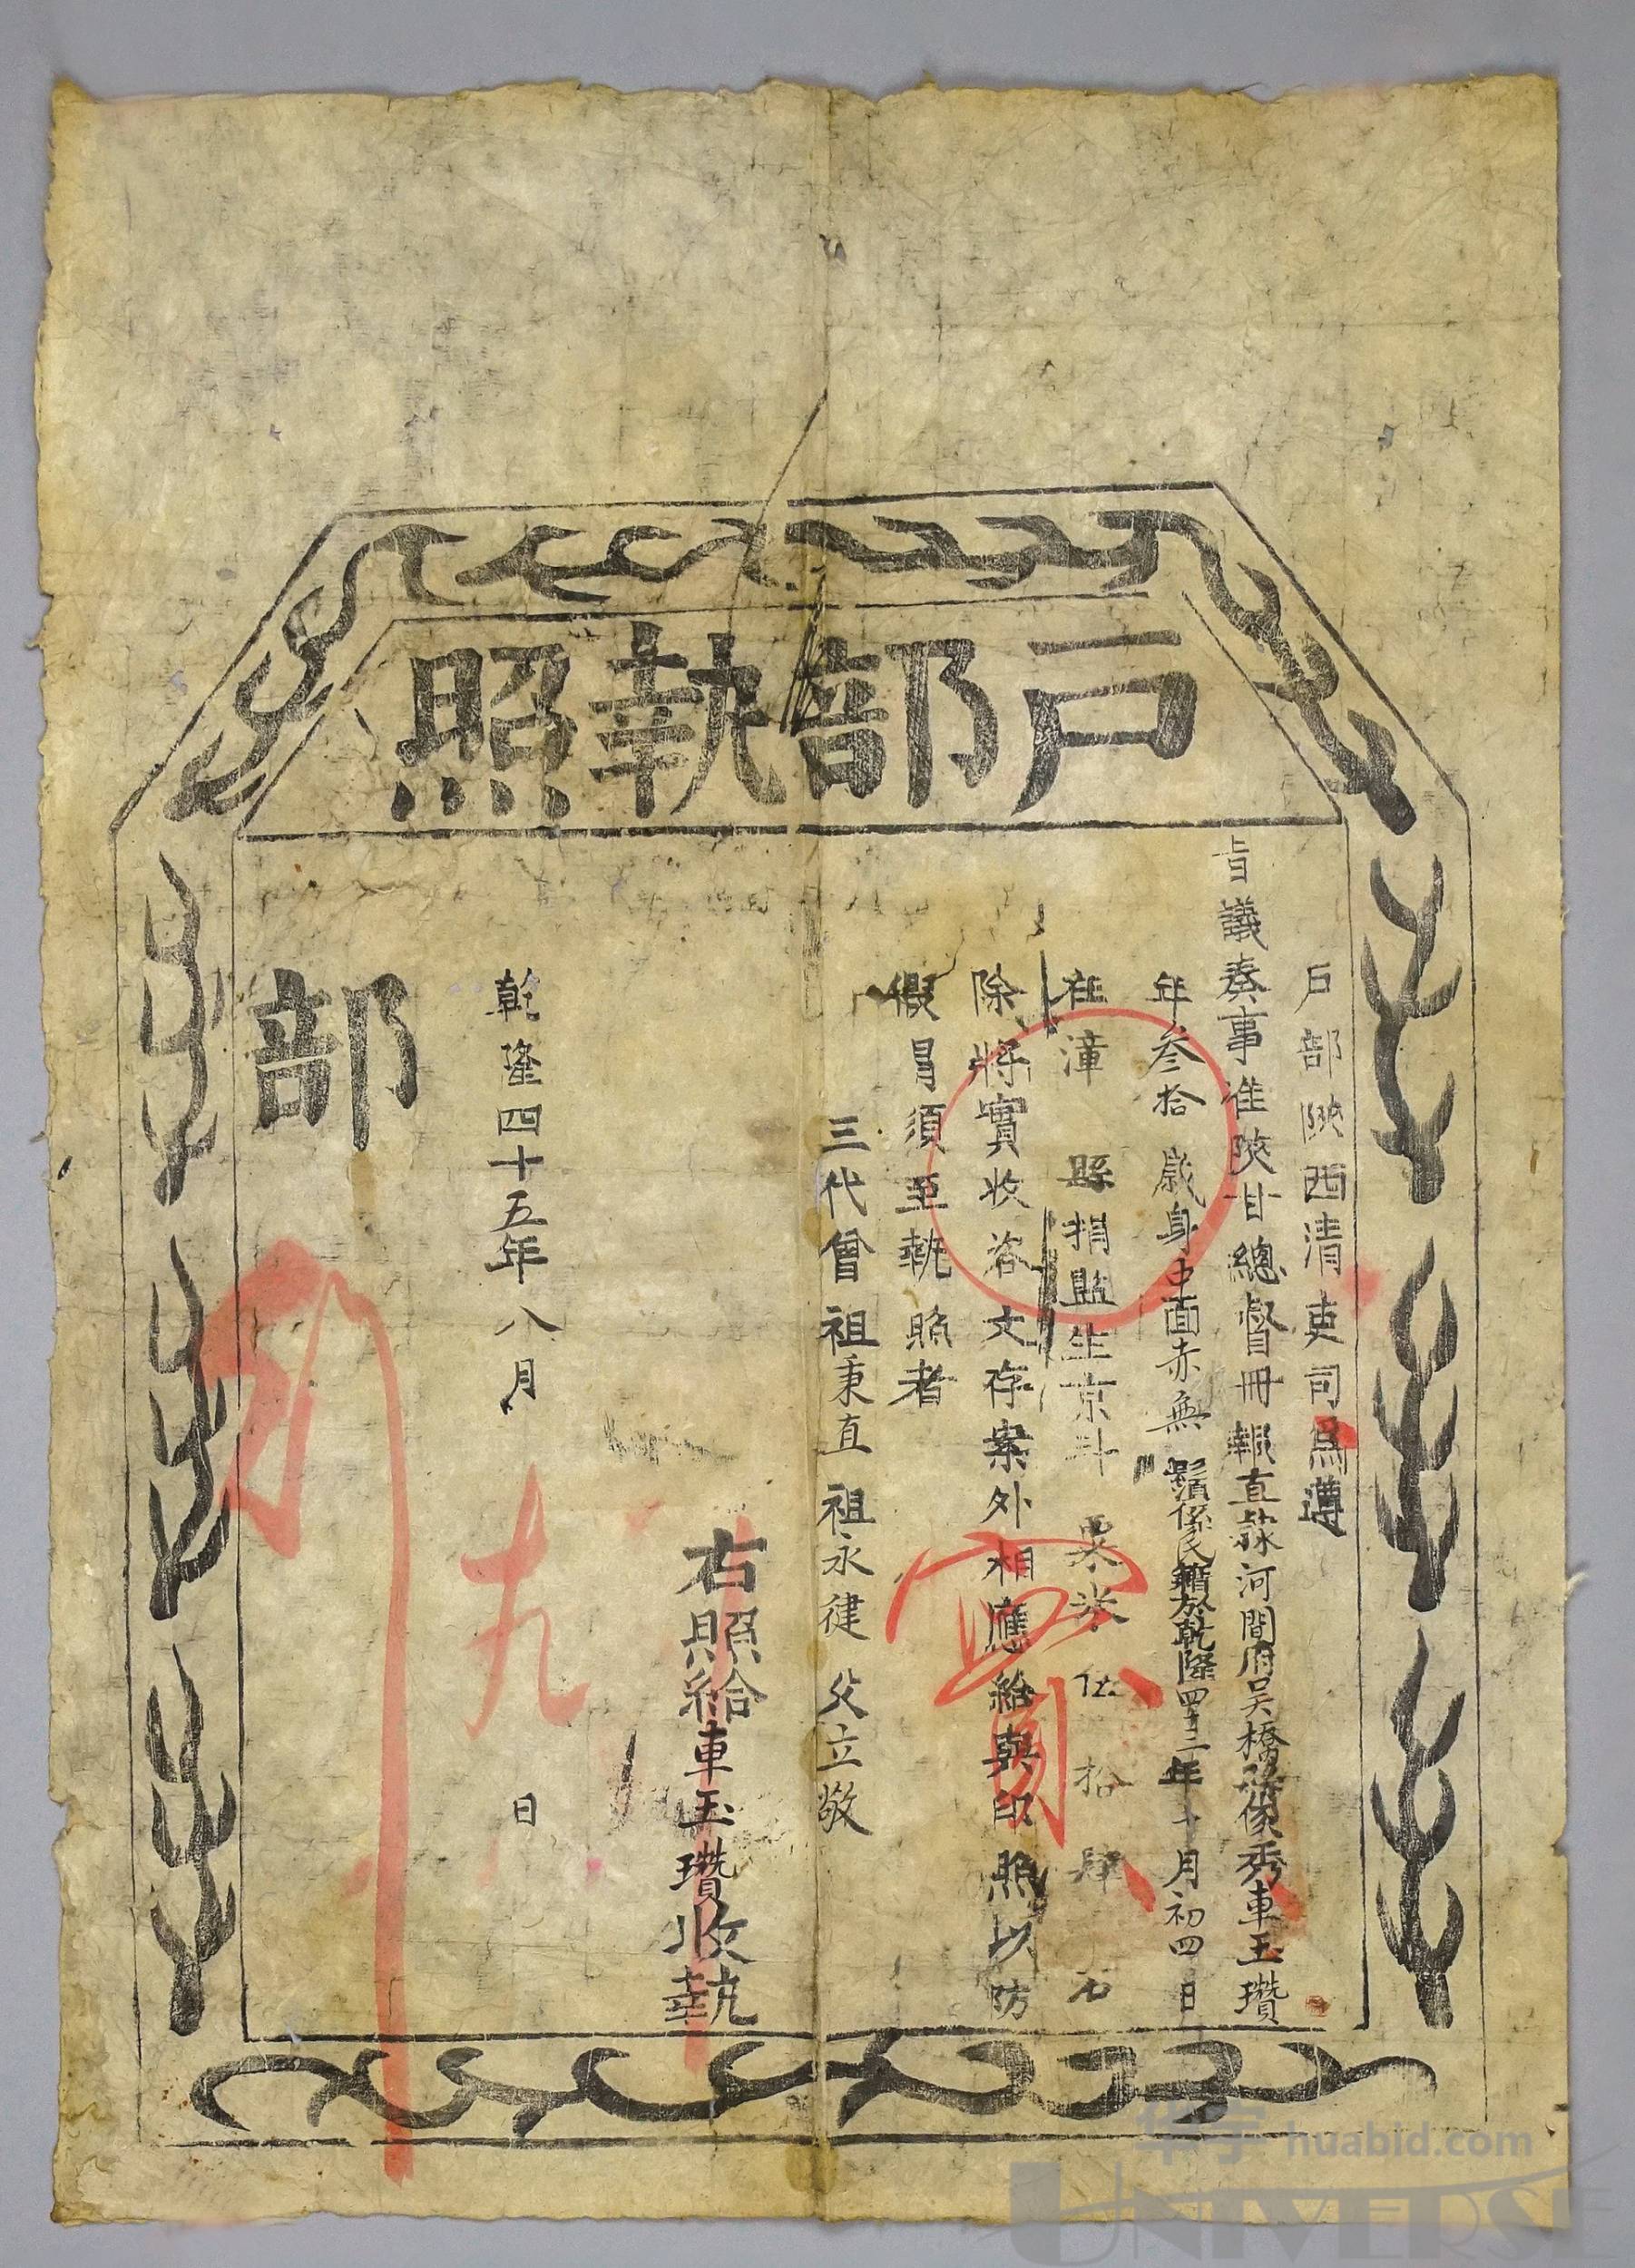 戶部執照
戶部陝西清吏司爲遵
旨議奏事准陝甘總督冊報直隸河間府吳橋縣俊秀車玉瓚
年叁拾歲身中面赤無鬚係民籍於乾隆四十三年十月初四日
在漳縣捐監生京斗粟米伍拾肆石
除將實收咨文存案外相應給與印照以防
假冒須至執照者
三代曾祖秉直 祖永健 父立敬
右照給車玉瓚收執
乾隆四十五年八月十九日
部
行
實
华宇 huabid.com
UNIVERSE